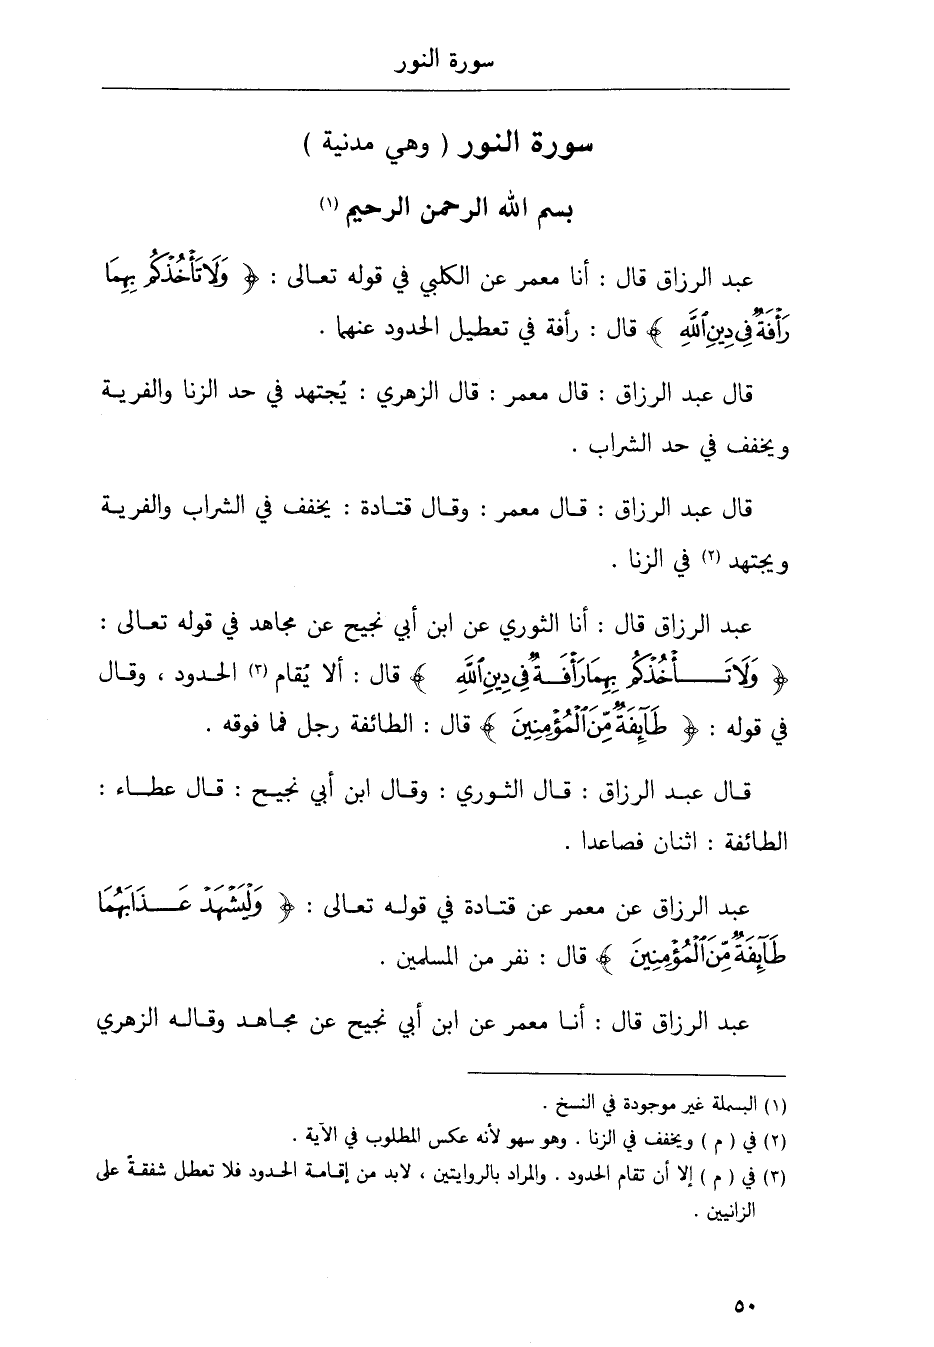 سورة النور
سورة النور ( وهي مدنية )
بسم الله الرحمن الرحيم (١)
عبد الرزاق قال : أنا معمر عن الكلبي في قوله تعالى : ﴿ وَلَا تَأْخُذْكُم بِهِمَا
رَأْفَةٌ فِي دِينِ ٱللَّهِ ﴾ قال : رأفة في تعطيل الحدود عنهما .
قال عبد الرزاق : قال معمر : قال الزهري : يُجتهد في حد الزنا والفرية
ويخفف في حد الشراب .
قال عبد الرزاق : قال معمر : وقال قتادة : يخفف في الشراب والفرية
ويجتهد (٢) في الزنا .
عبد الرزاق قال : أنا الثوري عن ابن أبي نجيح عن مجاهد في قوله تعالى :
﴿ وَلَا تَأْخُذْكُم بِهِمَا رَأْفَةٌ فِي دِينِ ٱللَّهِ ﴾ قال : ألا يُقام (٣) الحدود ، وقال
في قوله : ﴿ طَآئِفَةٌ مِّنَ ٱلْمُؤْمِنِينَ ﴾ قال : الطائفة رجل فما فوقه .
قال عبد الرزاق : قال الثوري : وقال ابن أبي نجيح : قال عطاء :
الطائفة : اثنان فصاعدا .
عبد الرزاق عن معمر عن قتادة في قوله تعالى : ﴿ وَلْيَشْهَدْ عَذَابَهُمَا
طَآئِفَةٌ مِّنَ ٱلْمُؤْمِنِينَ ﴾ قال : نفر من المسلمين .
عبد الرزاق قال : أنا معمر عن ابن أبي نجيح عن مجاهد وقاله الزهري
(١) البسملة غير موجودة في النسخ .
(٢) في ( م ) ويخفف في الزنا . وهو سهو لأنه عكس المطلوب في الآية .
(٣) في ( م ) إلا أن تقام الحدود . والمراد بالروايتين ، لابد من إقامة الحدود فلا تعطل شفقةً على
الزانيين .
٥٠